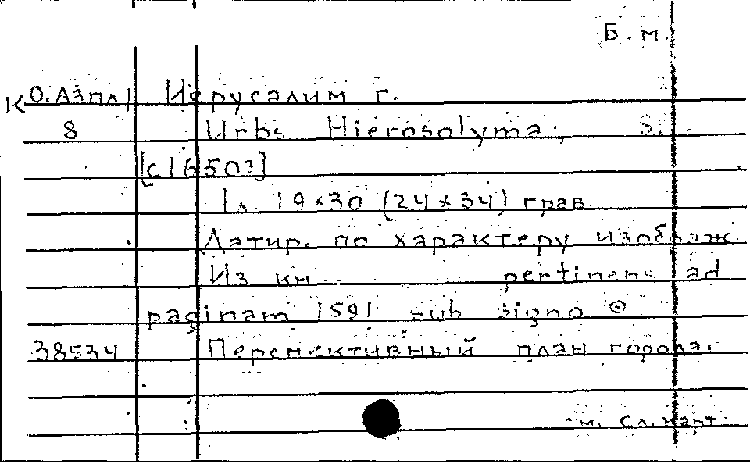 Б.м.
К О.Азпл1 Иерусалим г.
8 Urbs Hierosolyma; S.
[c1650?]
1л. 19×30 (24×34) грав
Датир. по характеру изображ.
Из кн pertinens ad
paginam 1591 sub signo ⊙
38534 Перспективный план города.
м. Сл.карт.